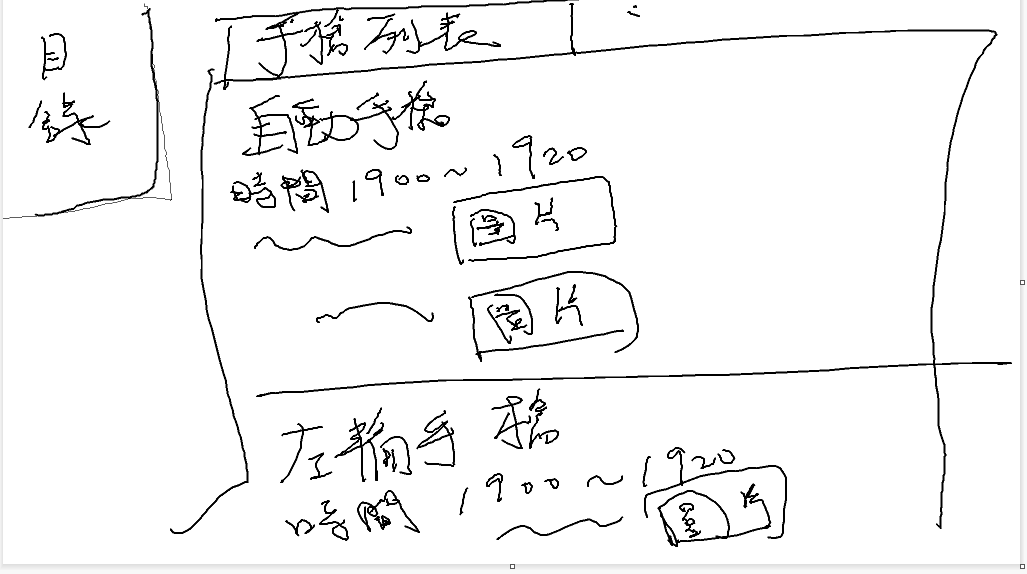 目
錄
手槍列表
自動手槍
時間 1900~1920
圖片
圖片
左輪手槍
時間 1900~1920
圖片